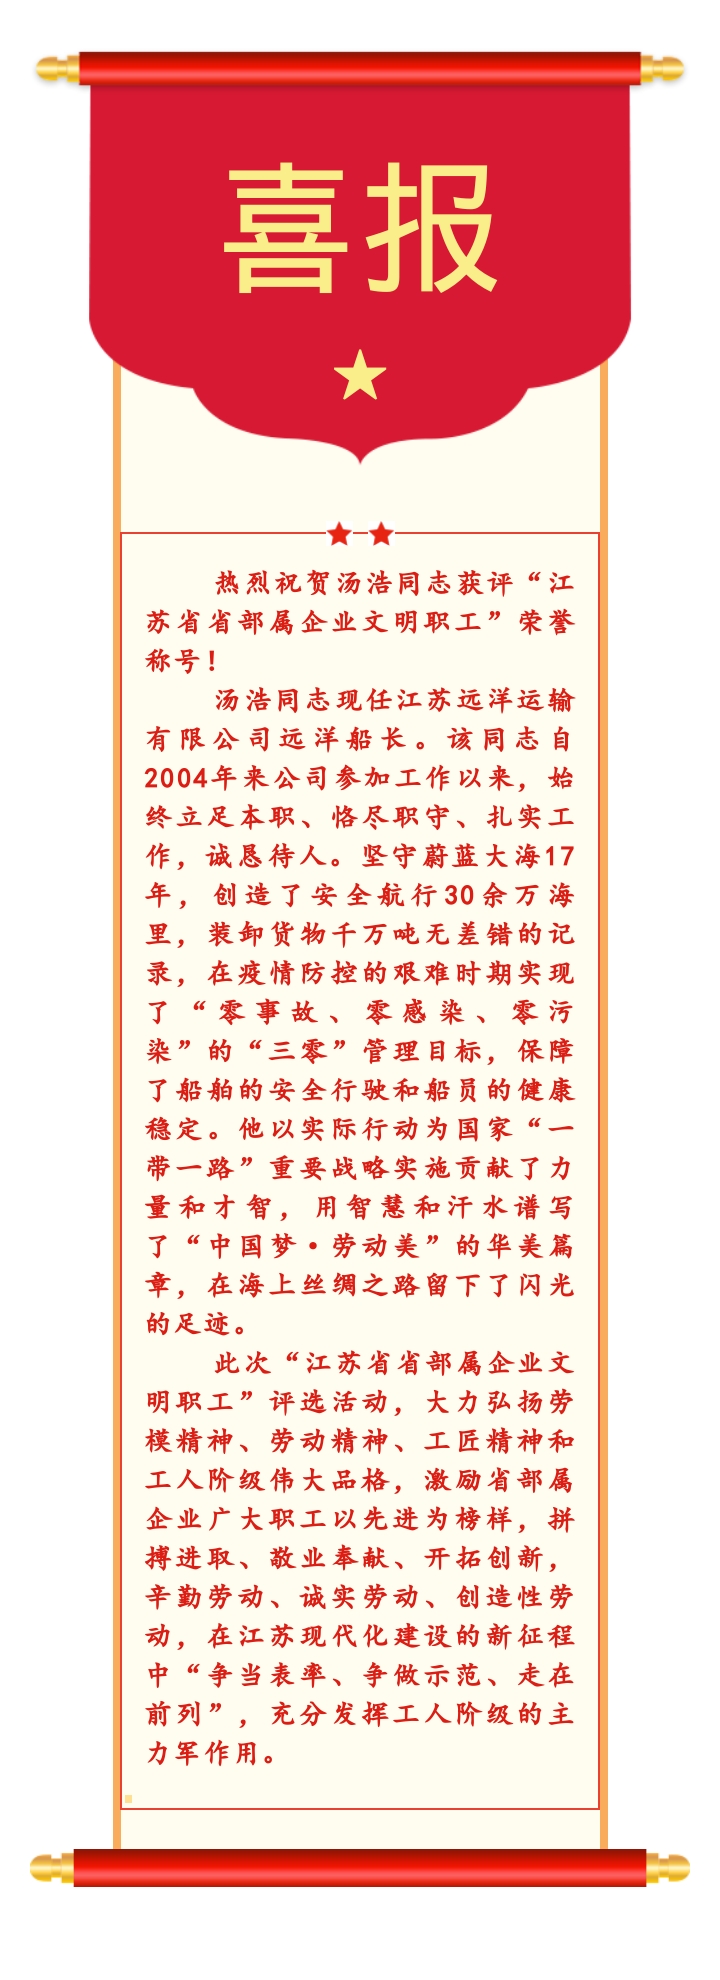 喜报
热烈祝贺汤浩同志获评“江
苏省省部属企业文明职工”荣誉
称号！
汤浩同志现任江苏远洋运输
有限公司远洋船长。该同志自
2004年来公司参加工作以来，始
终立足本职、恪尽职守、扎实工
作，诚恳待人。坚守蔚蓝大海17
年，创造了安全航行30余万海
里，装卸货物千万吨无差错的记
录，在疫情防控的艰难时期实现
了“零事故、零感染、零污
染”的“三零”管理目标，保障
了船舶的安全行驶和船员的健康
稳定。他以实际行动为国家“一
带一路”重要战略实施贡献了力
量和才智，用智慧和汗水谱写
了“中国梦·劳动美”的华美篇
章，在海上丝绸之路留下了闪光
的足迹。
此次“江苏省省部属企业文
明职工”评选活动，大力弘扬劳
模精神、劳动精神、工匠精神和
工人阶级伟大品格，激励省部属
企业广大职工以先进为榜样，拼
搏进取、敬业奉献、开拓创新，
辛勤劳动、诚实劳动、创造性劳
动，在江苏现代化建设的新征程
中“争当表率、争做示范、走在
前列”，充分发挥工人阶级的主
力军作用。